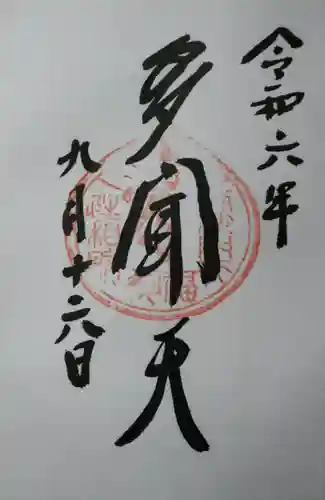 令和六年
多聞天
九月十六日